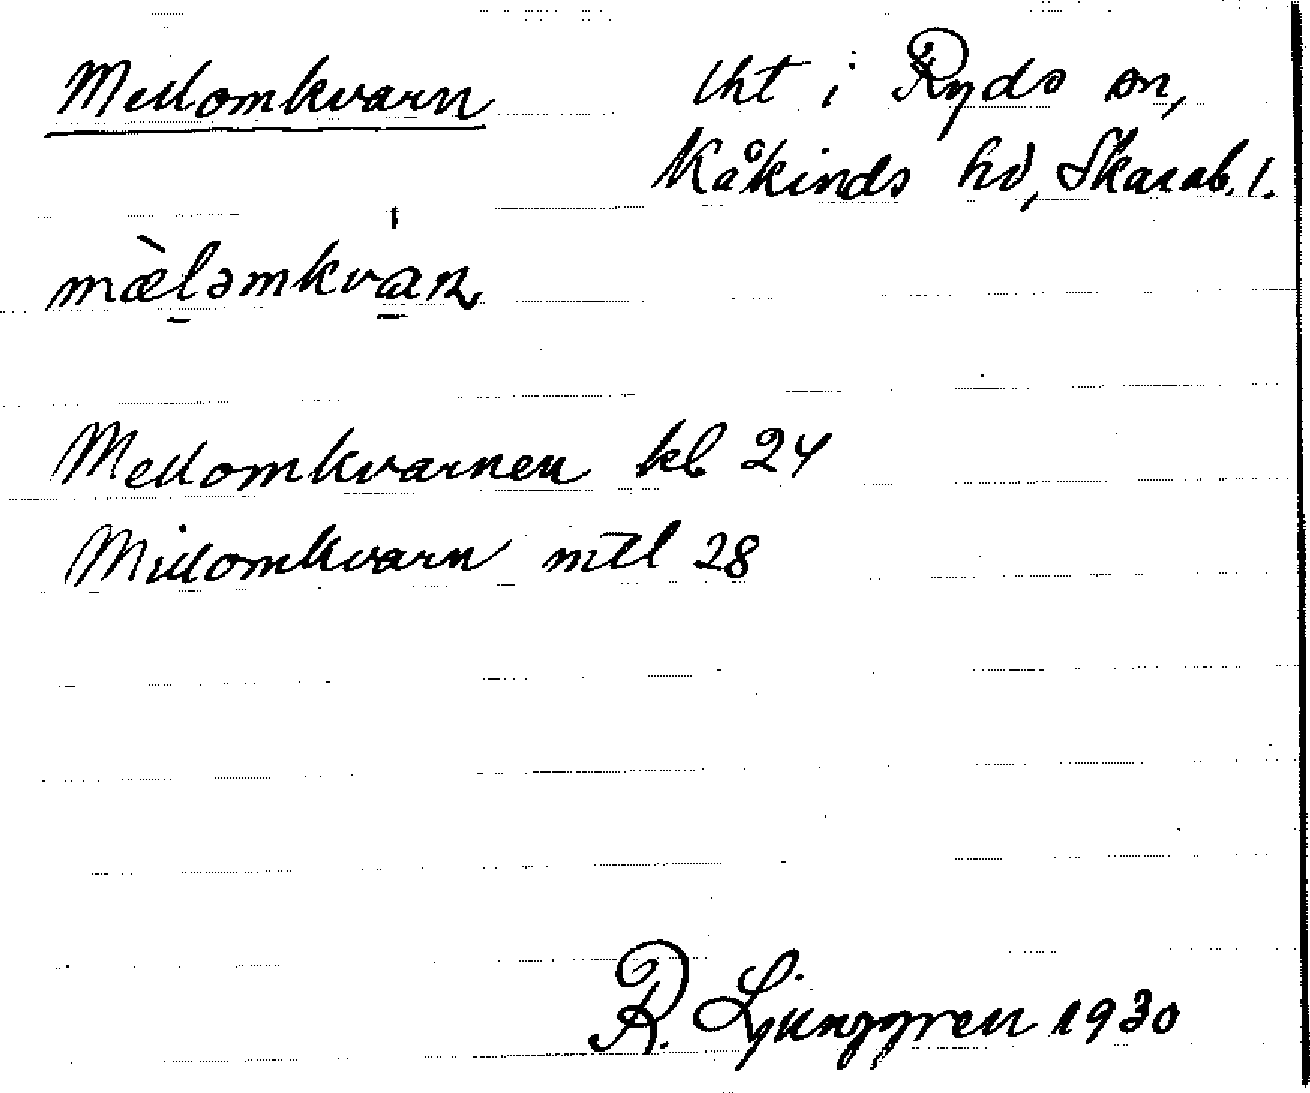 Mellomkvarn
lht i Ryds sn,
Kåkinds hd, Skarab. l.
mæ̀l̠əmkva̠ɳ
Mellomkvarnen kb 24
Mellomkvarn mtl 28
R. Ljunggren 1930